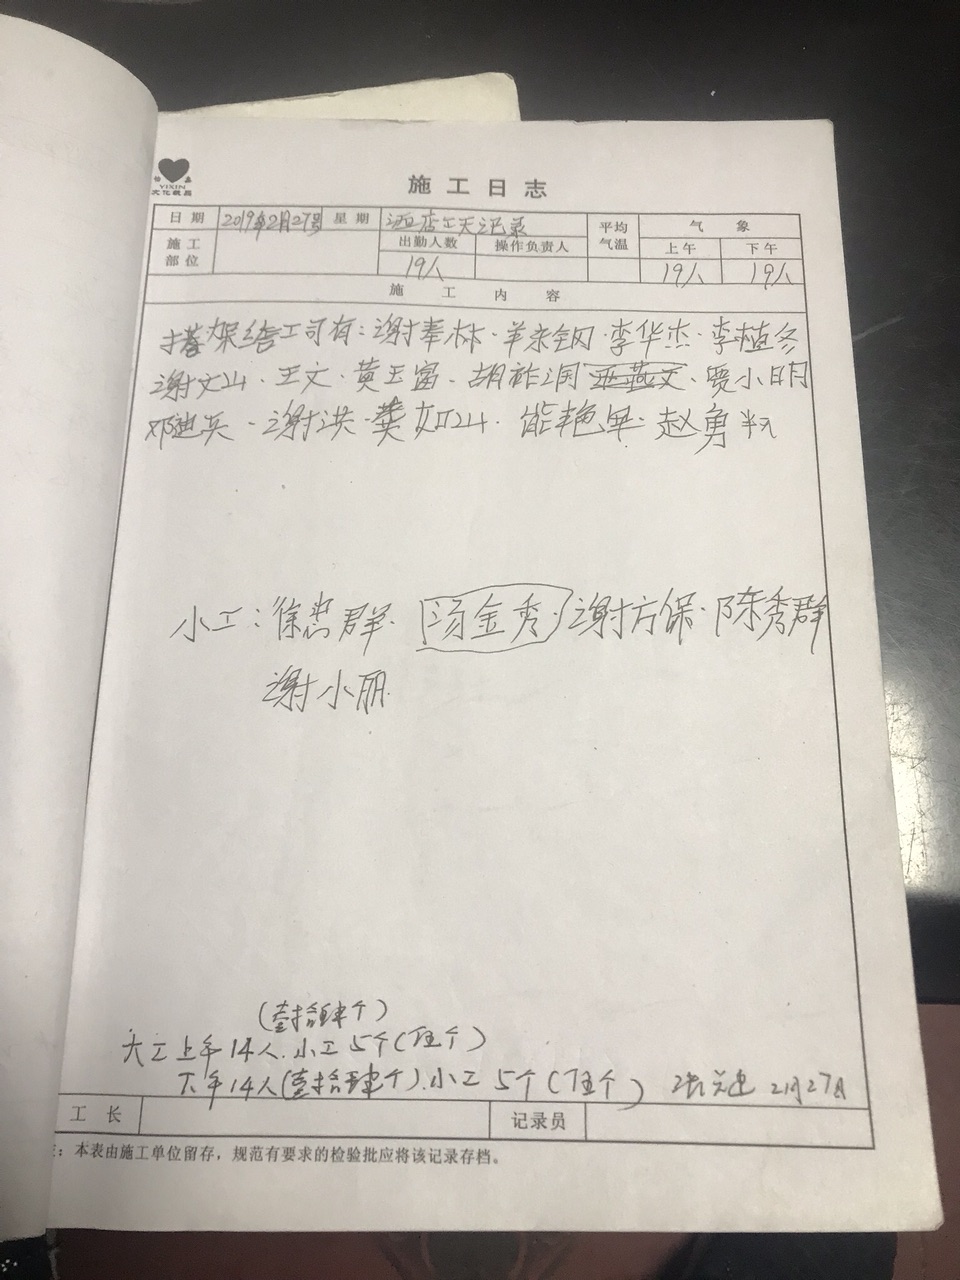 YIXIN
文化教品
施工日志
日期 2019年2月27号 星期 酒店工天记录 平均气温 气象
施工部位 出勤人数 操作负责人 上午 下午
19人 19人 19人
施工内容
搭架 工司有：谢奉林·羊宗钢·李华杰·李植冬
谢文山·王文·黄玉富·胡祚国 巫燕文·贾小明
邓迪兵·谢洪·龚如山·能艳军·赵勇
小工：徐忠群·汤金秀·谢方保·陈秀群
谢小丽
(壹拾肆个)
大工上午14人.小工5个(伍个)
下午14人(壹拾肆个).小工5个(伍个) 2月27日
工长 记录员
：本表由施工单位留存，规范有要求的检验批应将该记录存档。